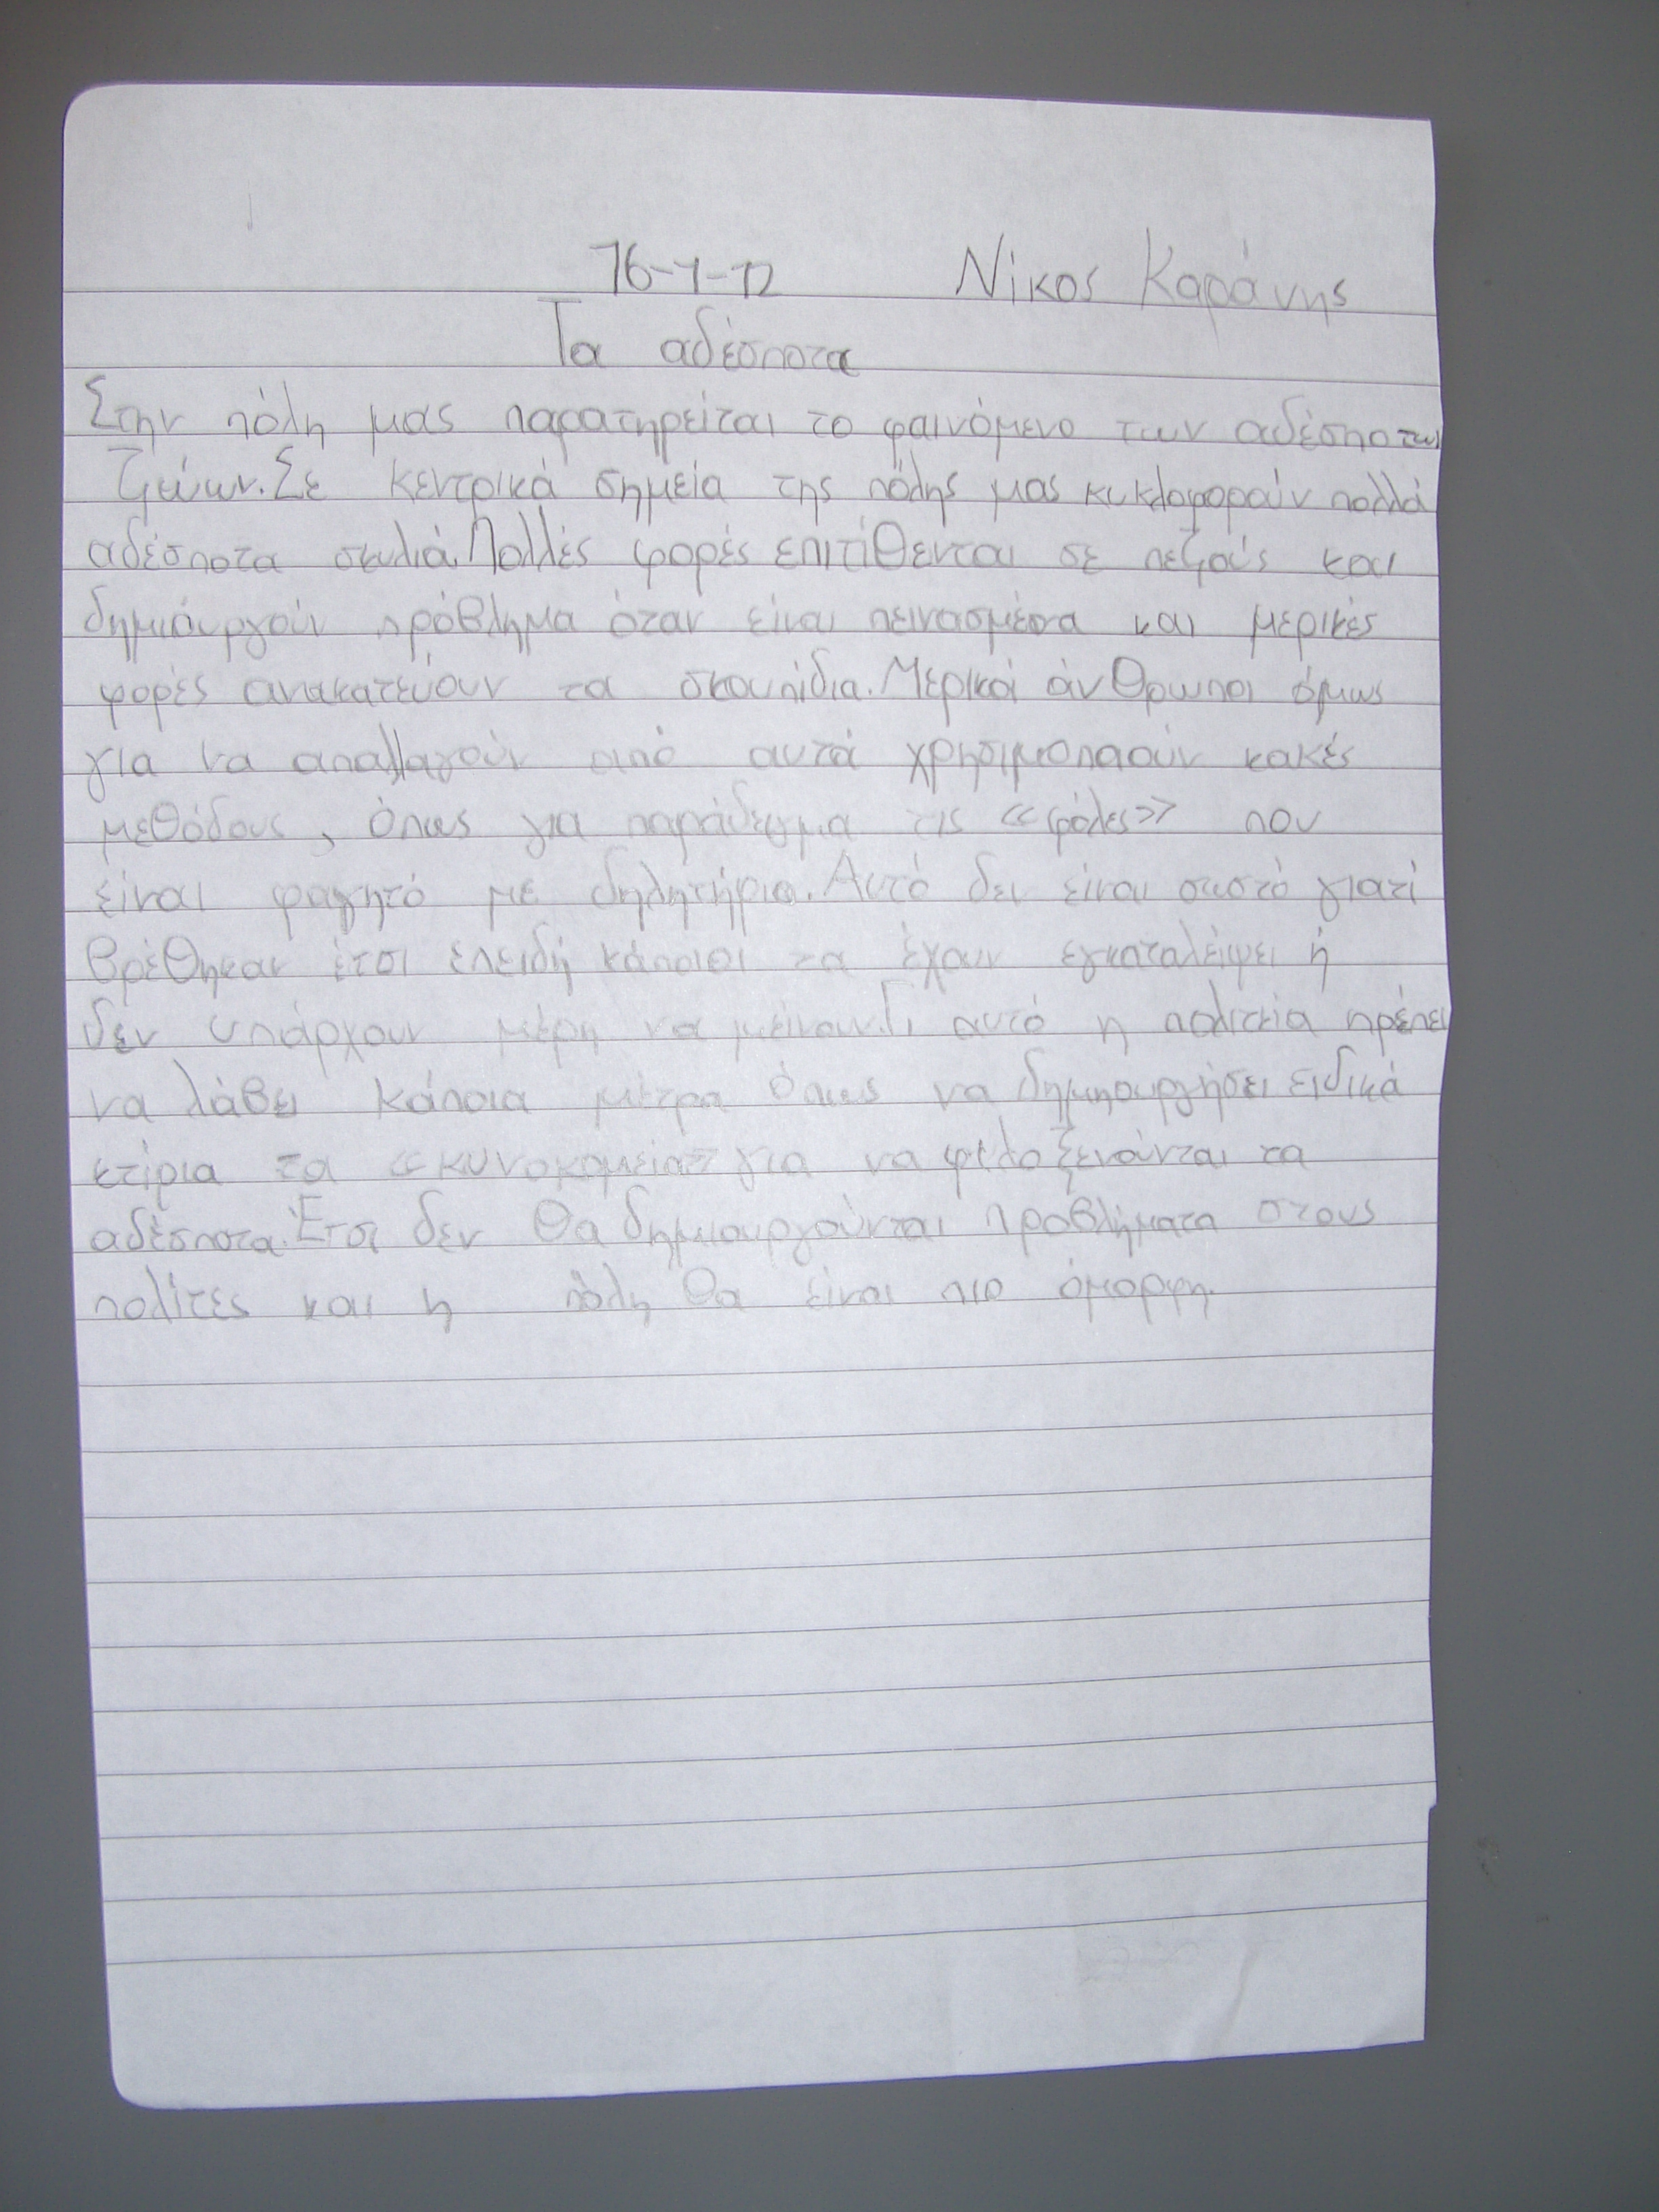 16-1-12 Νίκος Καράνης
Τα αδέσποτα
Στην πόλη μας παρατηρείται το φαινόμενο των αδέσποτων
ζώων. Σε κεντρικά σημεία της πόλης μας κυκλοφορούν πολλά
αδέσποτα σκυλιά. Πολλές φορές επιτίθενται σε πεζούς και
δημιουργούν πρόβλημα όταν είναι πεινασμένα και μερικές
φορές ανακατεύουν τα σκουπίδια. Μερικοί άνθρωποι όμως
για να απαλλαγούν από αυτά χρησιμοποιούν κακές
μεθόδους, όπως για παράδειγμα τις «φόλες» που
είναι φαγητό με δηλητήριο. Αυτό δεν είναι σωστό γιατί
βρέθηκαν έτσι επειδή κάποιοι τα έχουν εγκαταλείψει ή
δεν υπάρχουν μέρη να μείνουν. Γι αυτό η πολιτεία πρέπει
να λάβει κάποια μέτρα όπως να δημιουργήσει ειδικά
κτίρια τα «κυνοκομεία» για να φιλοξενούνται τα
αδέσποτα. Έτσι δεν θα δημιουργούνται προβλήματα στους
πολίτες και η πόλη θα είναι πιο όμορφη.